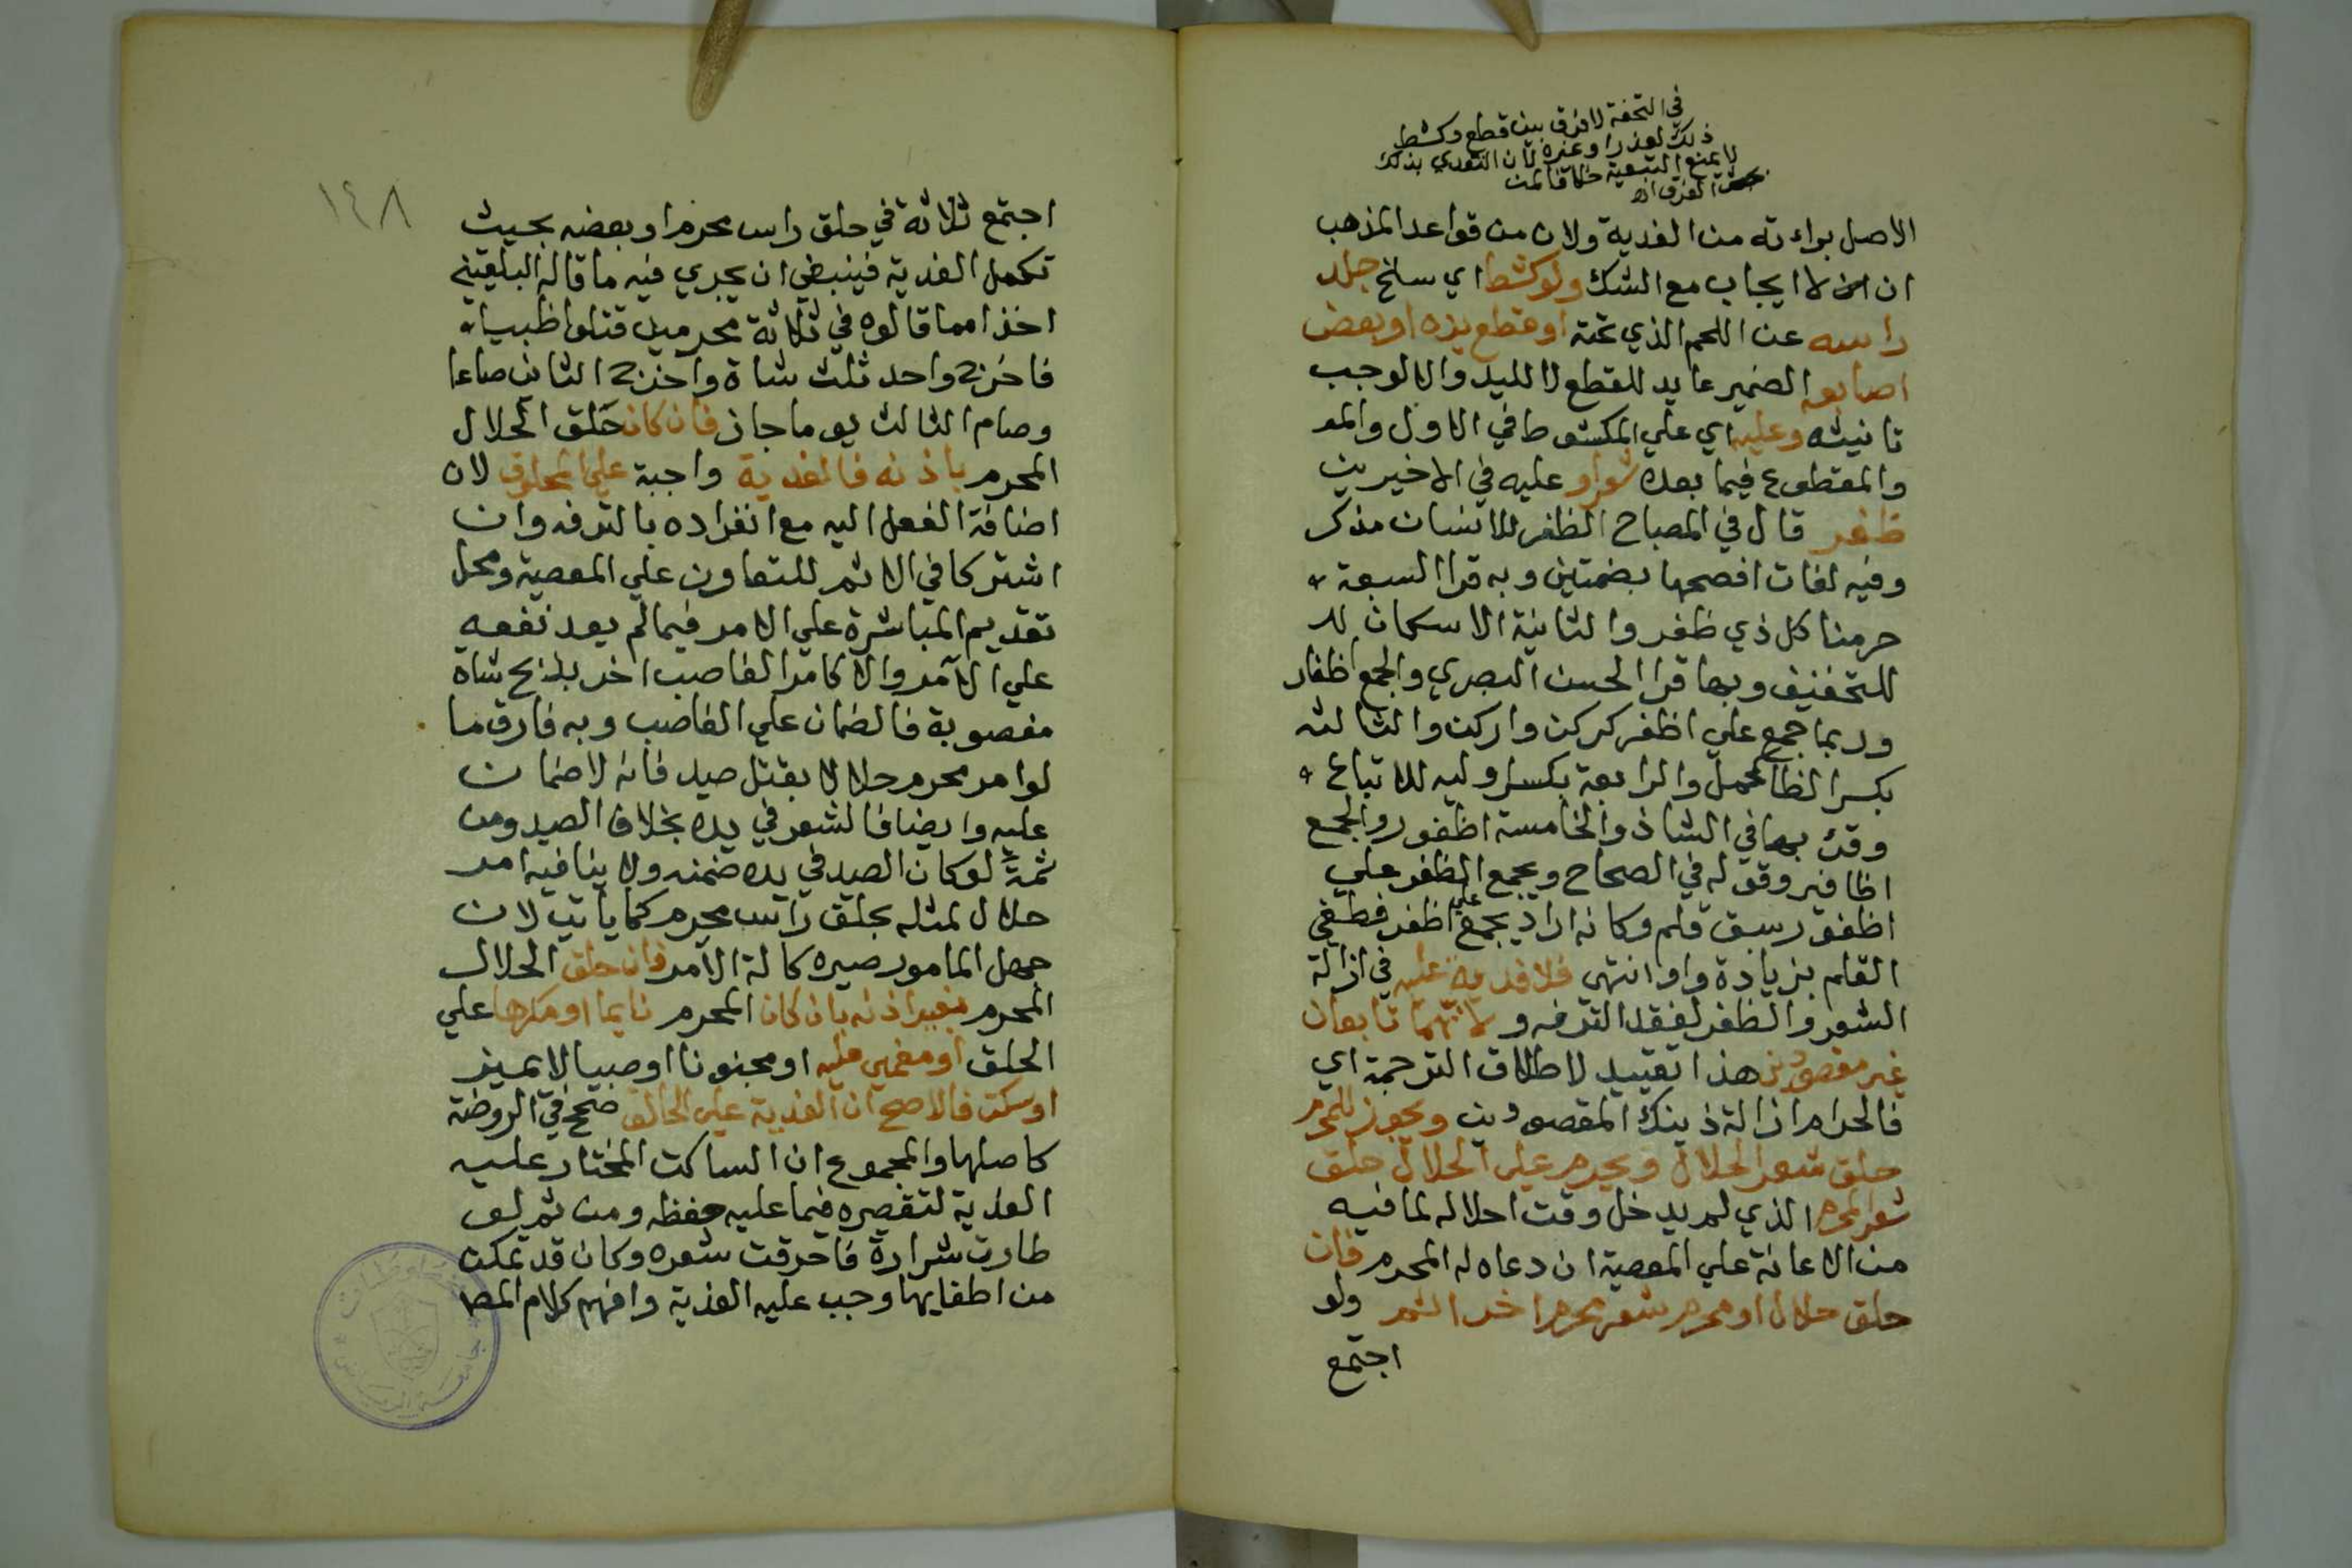 في التحفة لا فرق بين قطع وكشط
ذلك لعذر او غيره لان التعدي بذلك
لا يمنع التبعية خلافا لمن
الفرق اه
الاصل براءته من الفدية ولان من قواعد المذهب
ان لا ايجاب مع الشك ولو كشط اي سلخ جلد
راسه عن اللحم الذي تحته او قطع يده او بعض
اصابعه الضمير عايد للقطع لا لليد والا لوجب
تانيثه وعليه اي علي المكشوط في الاول والمق
والمقطوع فيما بعده شعر او عليه في الاخيرين
ظفر قال في المصباح الظفر للانسان مذكر
وفيه لغات افصحها بضمتين وبه قرا السبعة
حرمنا كل ذي ظفر والثانية الاسكان لد
للتخفيف وبها قرا الحسن البصري والجمع اظفار
وربما جمع علي اظفر كركن واركن والثالثه
بكسر الظا كحمل والرابعة بكسر اوليه للاتباع
وقرئ بهما في الشاذ والخامسة اظفور والجمع
اظافير وقوله في الصحاح ويجمع الظفر علي
اظفور سبق قلم وكانه اراد يجمع علي اظفر فطغي
القلم بزيادة واو انتهي فلا فدية عليه في ازالة
الشعر والظفر لفقد الترفه و لانهما تابعان
غير مقصودين هذا تقييد لاطلاق الترجمة اي
فالحرام ازالة ذينك المقصودين ويجوز للمحرم
حلق شعر الحلال ويحرم علي الحلال حلق
شعر المحرم الذي لم يدخل وقت احلاله لما فيه
من الاعانة علي المعصية ان دعاه له المحرم فان
حلق حلال او محرم شعر محرم اخر اثم ولو
اجتمع
١٤٨
اجتمع ثلاثة في حلق راس محرم او بعضه بحيث
تكمل الفدية فينبغي ان يجري فيه ما قاله البلقيني
اخذا مما قالوه في ثلاثة محرمين قتلوا ظبيا
فاخرج واحد ثلث شاة واخرج الثاني صاعا
وصام الثالث يوما جاز فان كان حلق الحلال
المحرم باذنه فالفدية واجبة علي المحلوق لان
اضافة الفعل اليه مع انفراده بالترفه وان
اشتركا في الاثم للتعاون علي المعصية ومحل
تقديم المباشرة علي الامر فيما لم يعد نفعه
علي الآمر والا كامر الغاصب اخر بذبح شاة
مغصوبة فالضمان علي الغاصب وبه فارق ما
لو امر محرم حلالا بقتل صيد فانه لا ضمان
عليه وايضا فالشعر في يده بخلاف الصيد ومن
ثمة لو كان الصيد في يده ضمنه ولا ينافيه امر
حلال لمثله بحلق راس محرم كما ياتي لان
جهل المامور صيره كالة الآمر فان حلق الحلال
المحرم بغير اذنه بان كان المحرم نايما او مكرها علي
الحلق او مغمي عليه او مجنونا او صبيا لا يميز
او سكت فالاصح ان الفدية علي الحالق صحح في الروضة
كاصلها والمجموع ان الساكت المختار عليه
الفدية لتقصيره فيما عليه حفظه ومن ثم لو
طارت شرارة فاحرقت شعره وكان قد تمكن
من اطفايها وجب عليه الفدية وافهم كلام المص